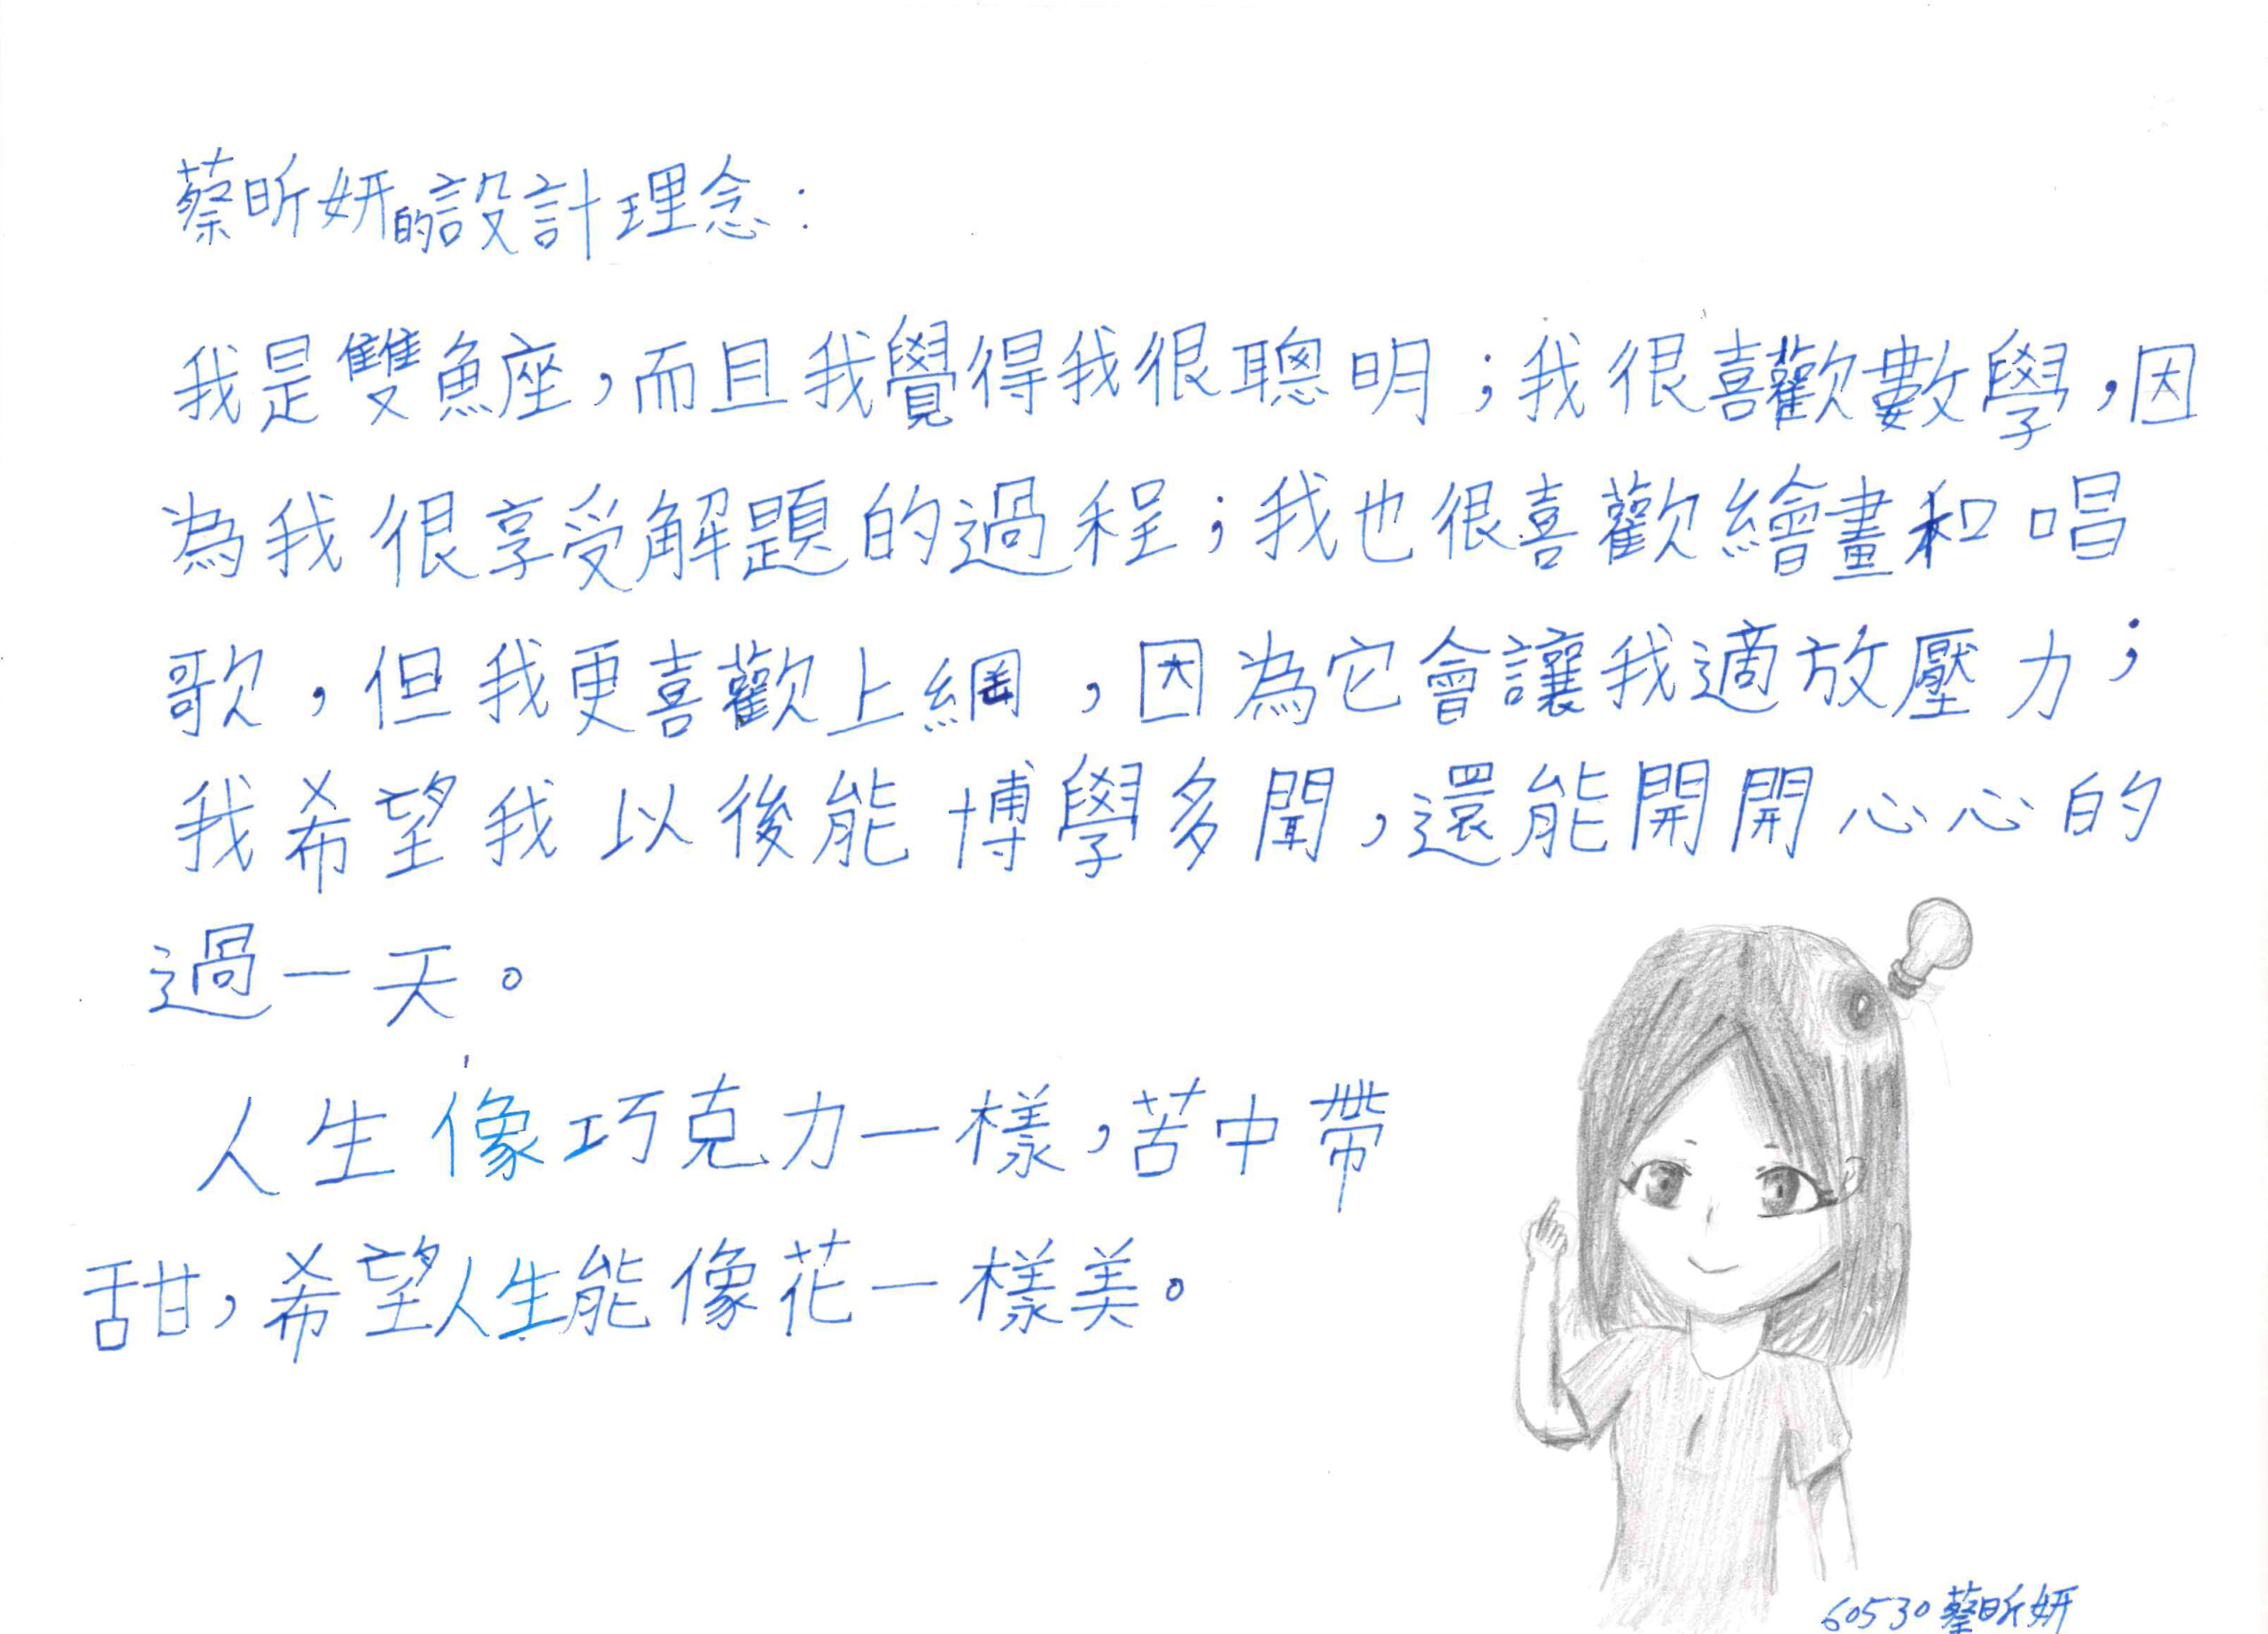 蔡昕妍的設計理念:
我是雙魚座,而且我覺得我很聰明;我很喜歡數學,因
為我很享受解題的過程;我也很喜歡繪畫和唱
歌,但我更喜歡上網,因為它會讓我適放壓力;
我希望我以後能博學多聞,還能開開心心的
過一天。
人生像巧克力一樣,苦中帶
甜,希望人生能像花一樣美。
60530蔡昕妍